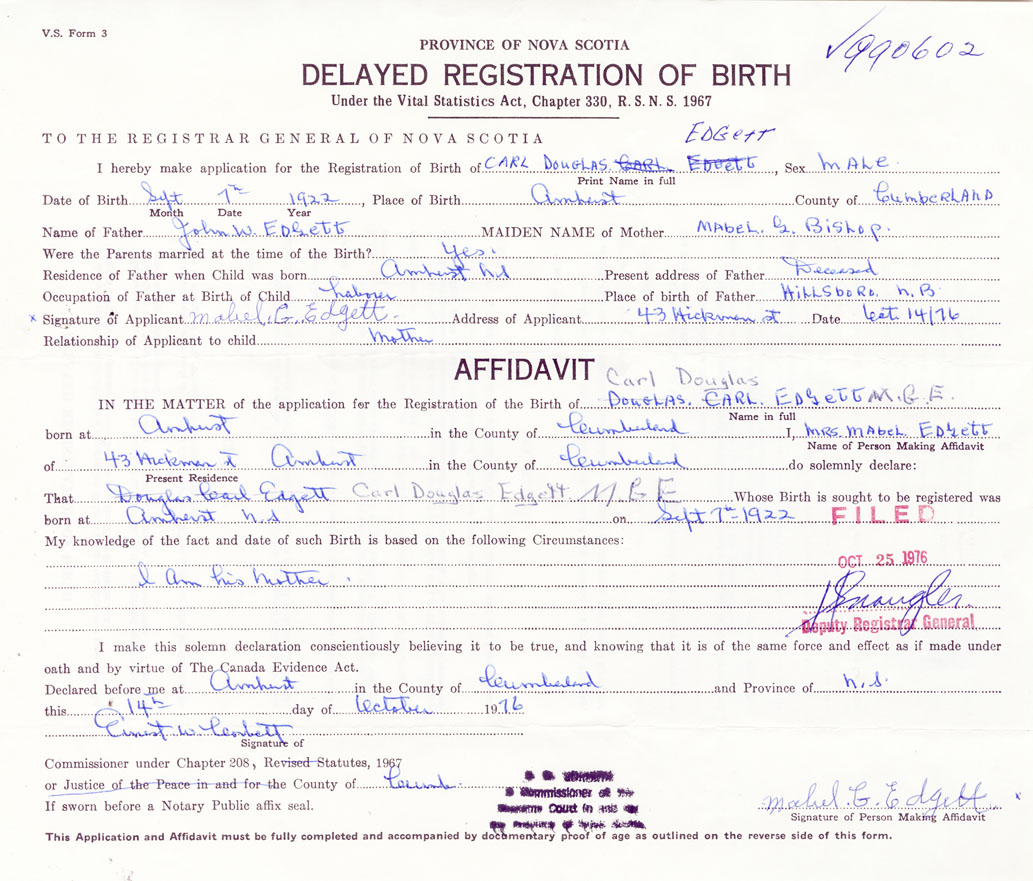 V.S. Form 3
990602
PROVINCE OF NOVA SCOTIA
DELAYED REGISTRATION OF BIRTH
Under the Vital Statistics Act, Chapter 330, R. S. N. S. 1967
TO THE REGISTRAR GENERAL OF NOVA SCOTIA
EDGETT
I hereby make application for the Registration of Birth of CARL DOUGLAS CARL EDGETT, Sex MALE.
Print Name in full
Date of Birth Sept 7th 1922, Place of Birth Amherst County of CUMBERLAND
Month Date Year
Name of Father John W. EDGETT MAIDEN NAME of Mother MABEL. G. BISHOP.
Were the Parents married at the time of the Birth? Yes.
Residence of Father when Child was born Amherst N.S Present address of Father Deceased
Occupation of Father at Birth of Child Laborer Place of birth of Father HILLSBORO. N.B
x Signature of Applicant Mabel. G. Edgett. Address of Applicant 43 Hickman St Date Oct. 14/76
Relationship of Applicant to child Mother
AFFIDAVIT
Carl Douglas
IN THE MATTER of the application for the Registration of the Birth of DOUGLAS. CARL. EDGETT M.G.E.
Name in full
born at Amherst in the County of Cumberland I, MRS. MABEL EDGETT
Name of Person Making Affidavit
of 43 Hickman St Amherst in the County of Cumberland do solemnly declare:
Present Residence
That Douglas Carl Edgett Carl Douglas Edgett M G E Whose Birth is sought to be registered was
born at Amherst N.S on Sept 7th 1922
FILED
My knowledge of the fact and date of such Birth is based on the following Circumstances:
OCT 25 1976
I Am his Mother.
Deputy Registrar General
I make this solemn declaration conscientiously believing it to be true, and knowing that it is of the same force and effect as if made under
oath and by virtue of The Canada Evidence Act.
Declared before me at Amherst in the County of Cumberland and Province of N.S.
this 14th day of October 1976
Ernest W. Corbett
Signature of
Commissioner under Chapter 208, Revised Statutes, 1967
or Justice of the Peace in and for the County of Cumb.
If sworn before a Notary Public affix seal.
A Commissioner of the
Supreme Court in and for
the Province of Nova Scotia
Mabel. G. Edgett x
Signature of Person Making Affidavit
This Application and Affidavit must be fully completed and accompanied by documentary proof of age as outlined on the reverse side of this form.